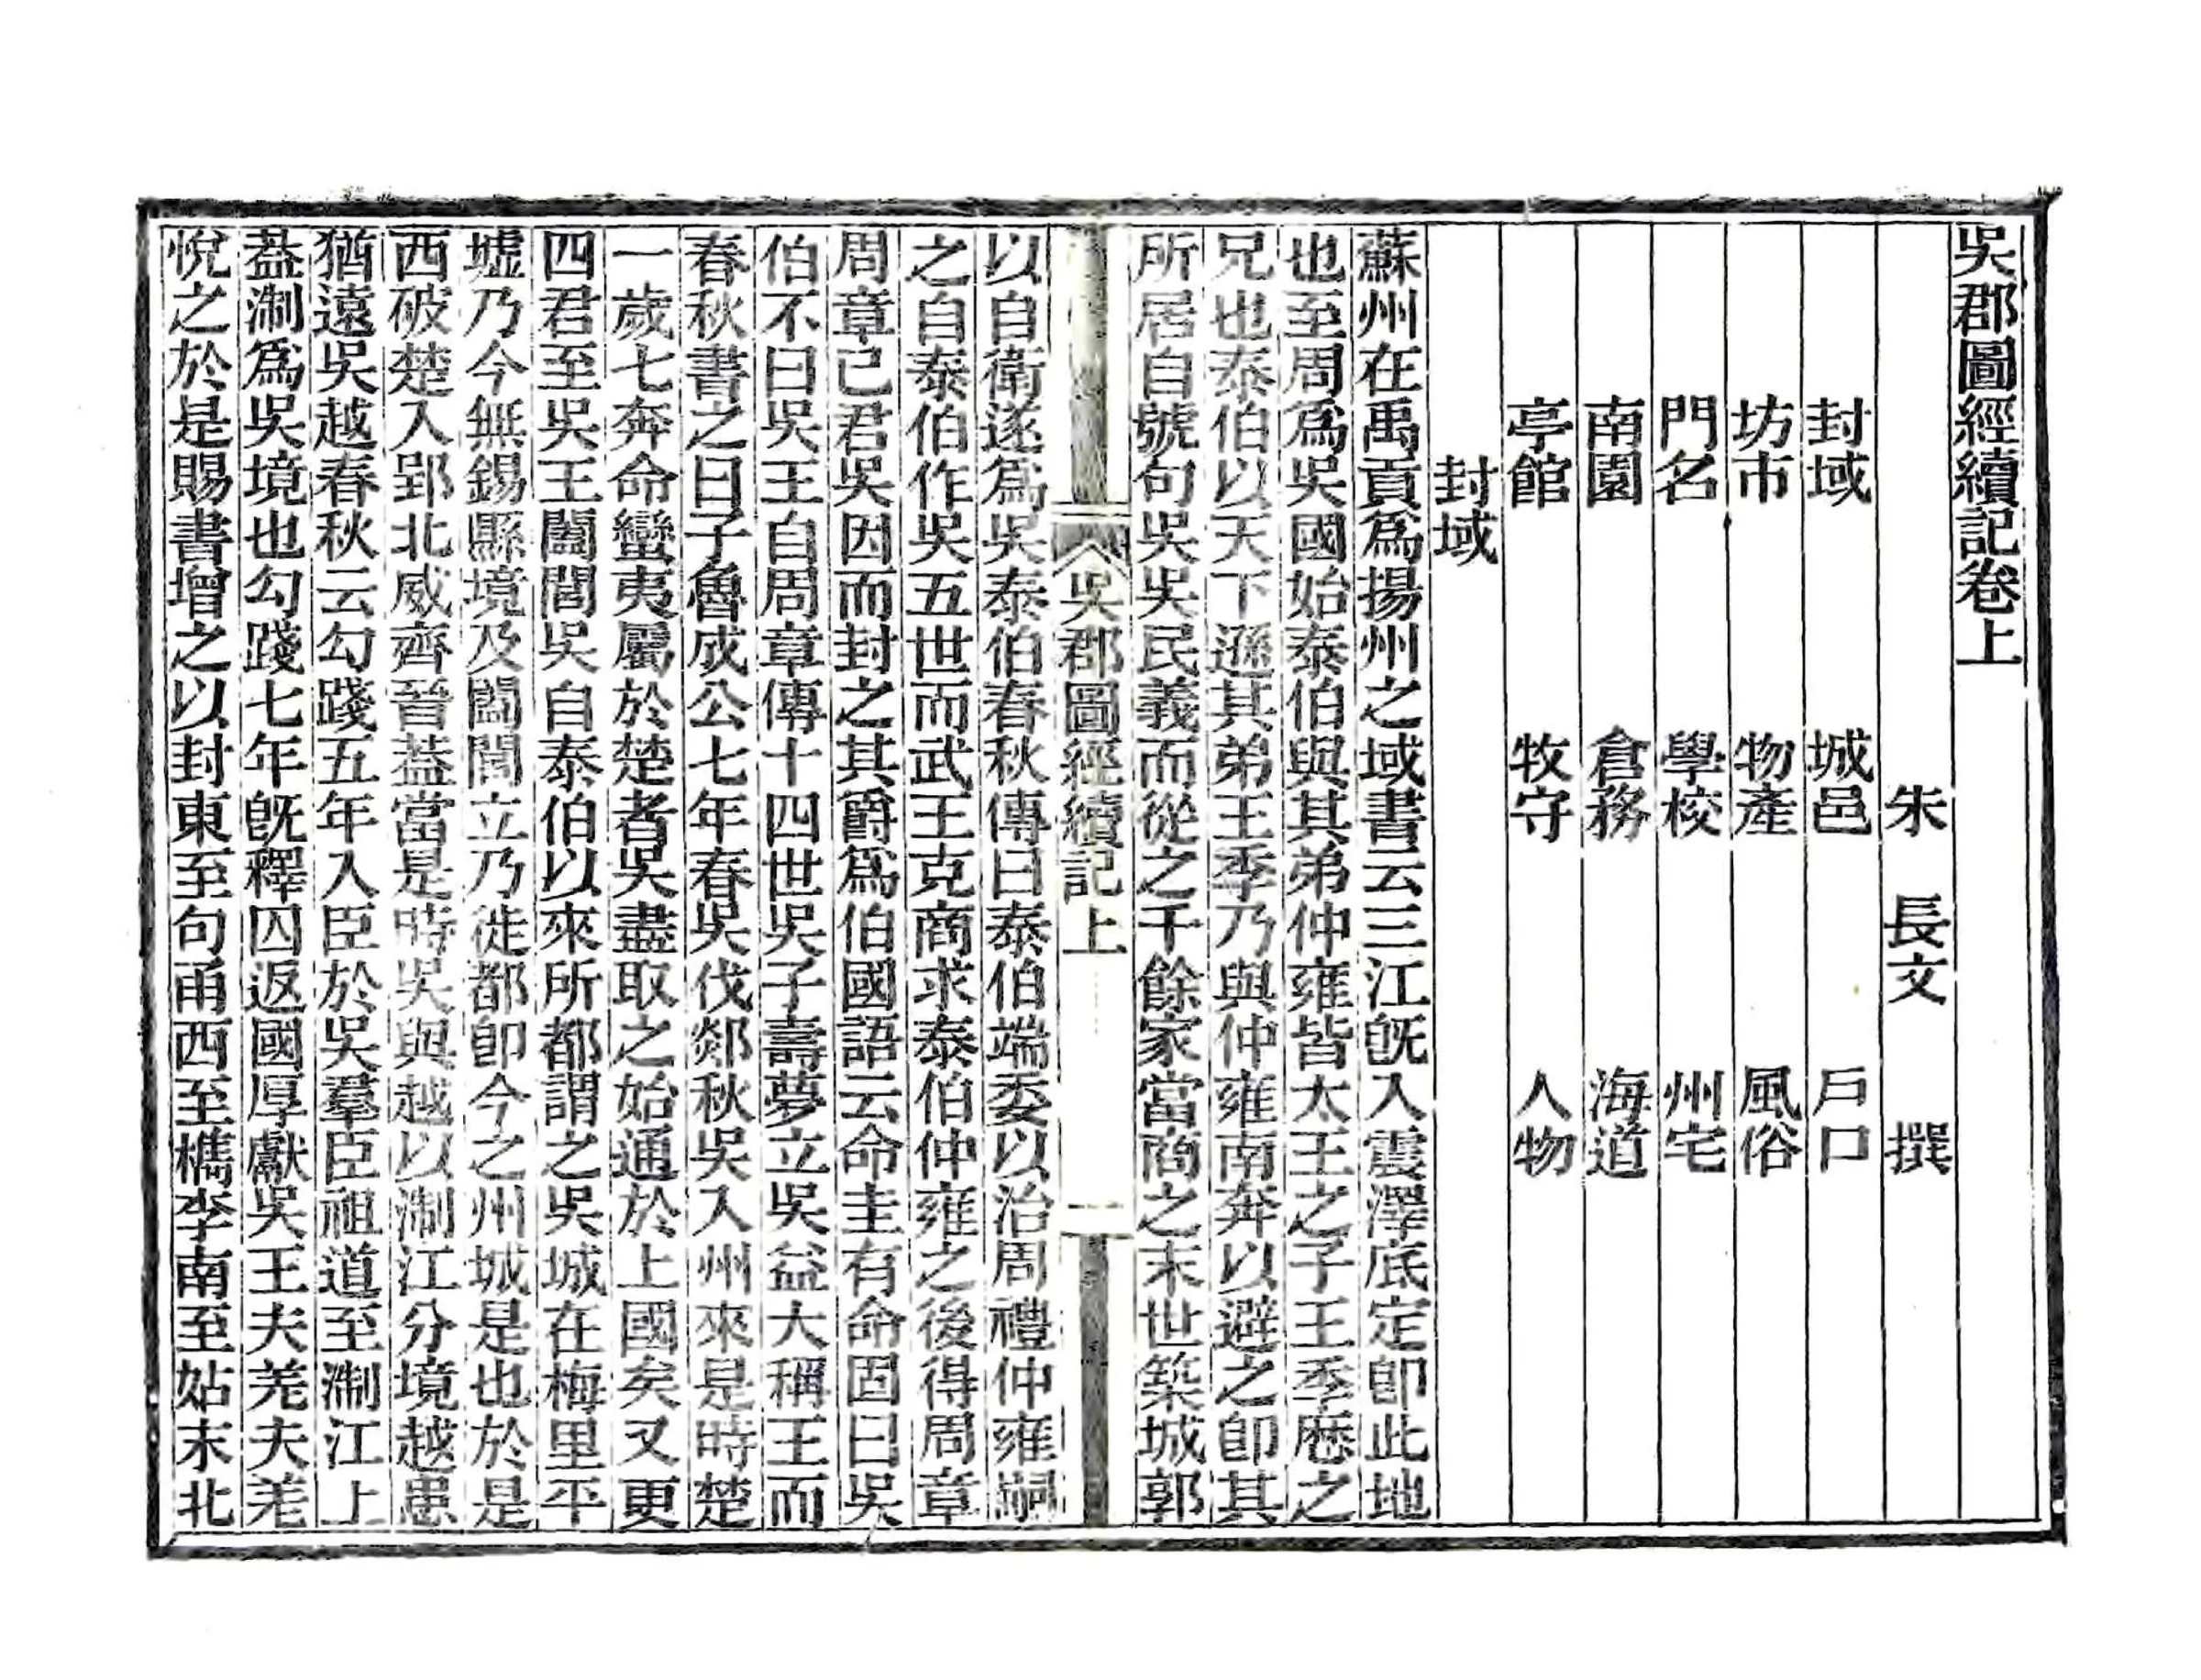 吳郡圖經續記卷上
朱 長文 撰
封域 城邑 戶口
坊市 物產 風俗
門名 學校 州宅
南園 倉務 海道
亭館 牧守 人物
封域
蘇州在禹貢爲揚州之域書云三江旣入震澤底定卽此地
也至周爲吳國始泰伯與其弟仲雍皆太王之子王季歷之
兄也泰伯以天下遜其弟王季乃與仲雍南奔以避之卽其
所居自號句吳吳民義而從之千餘家當商之末世築城郭
吳郡圖經續記上
一
以自衛遂爲吳泰伯春秋傳曰泰伯端委以治周禮仲雍嗣
之自泰伯作吳五世而武王克商求泰伯仲雍之後得周章
周章已君吳因而封之其爵爲伯國語云命圭有命固曰吳
伯不曰吳王自周章傳十四世吳子壽夢立吳益大稱王而
春秋書之曰子魯成公七年春吳伐郯秋吳入州來是時楚
一歲七奔命蠻夷屬於楚者吳盡取之始通於上國矣又更
四君至吳王闔閭吳自泰伯以來所都謂之吳城在梅里平
墟乃今無錫縣境及闔閭立乃徙都卽今之州城是也於是
西破楚入郢北威齊晉葢當是時吳與越以淛江分境越患
猶遠吳越春秋云勾踐五年入臣於吳羣臣祖道至淛江上
葢淛爲吳境也勾踐七年旣釋囚返國厚獻吳王夫差夫差
悅之於是賜書增之以封東至句甬西至檇李南至姑末北